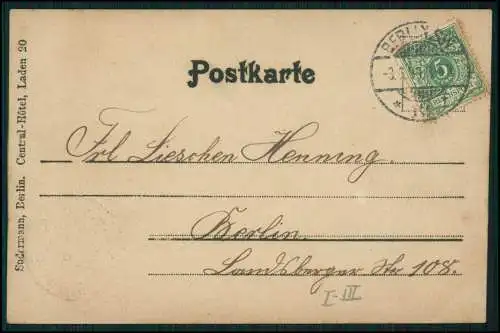 Sudermann, Berlin. Central-Hôtel, Laden 20
Postkarte
BERLIN
5
Frl Lieschen Henning.
Berlin.
Landsberger Str 108.
I-III